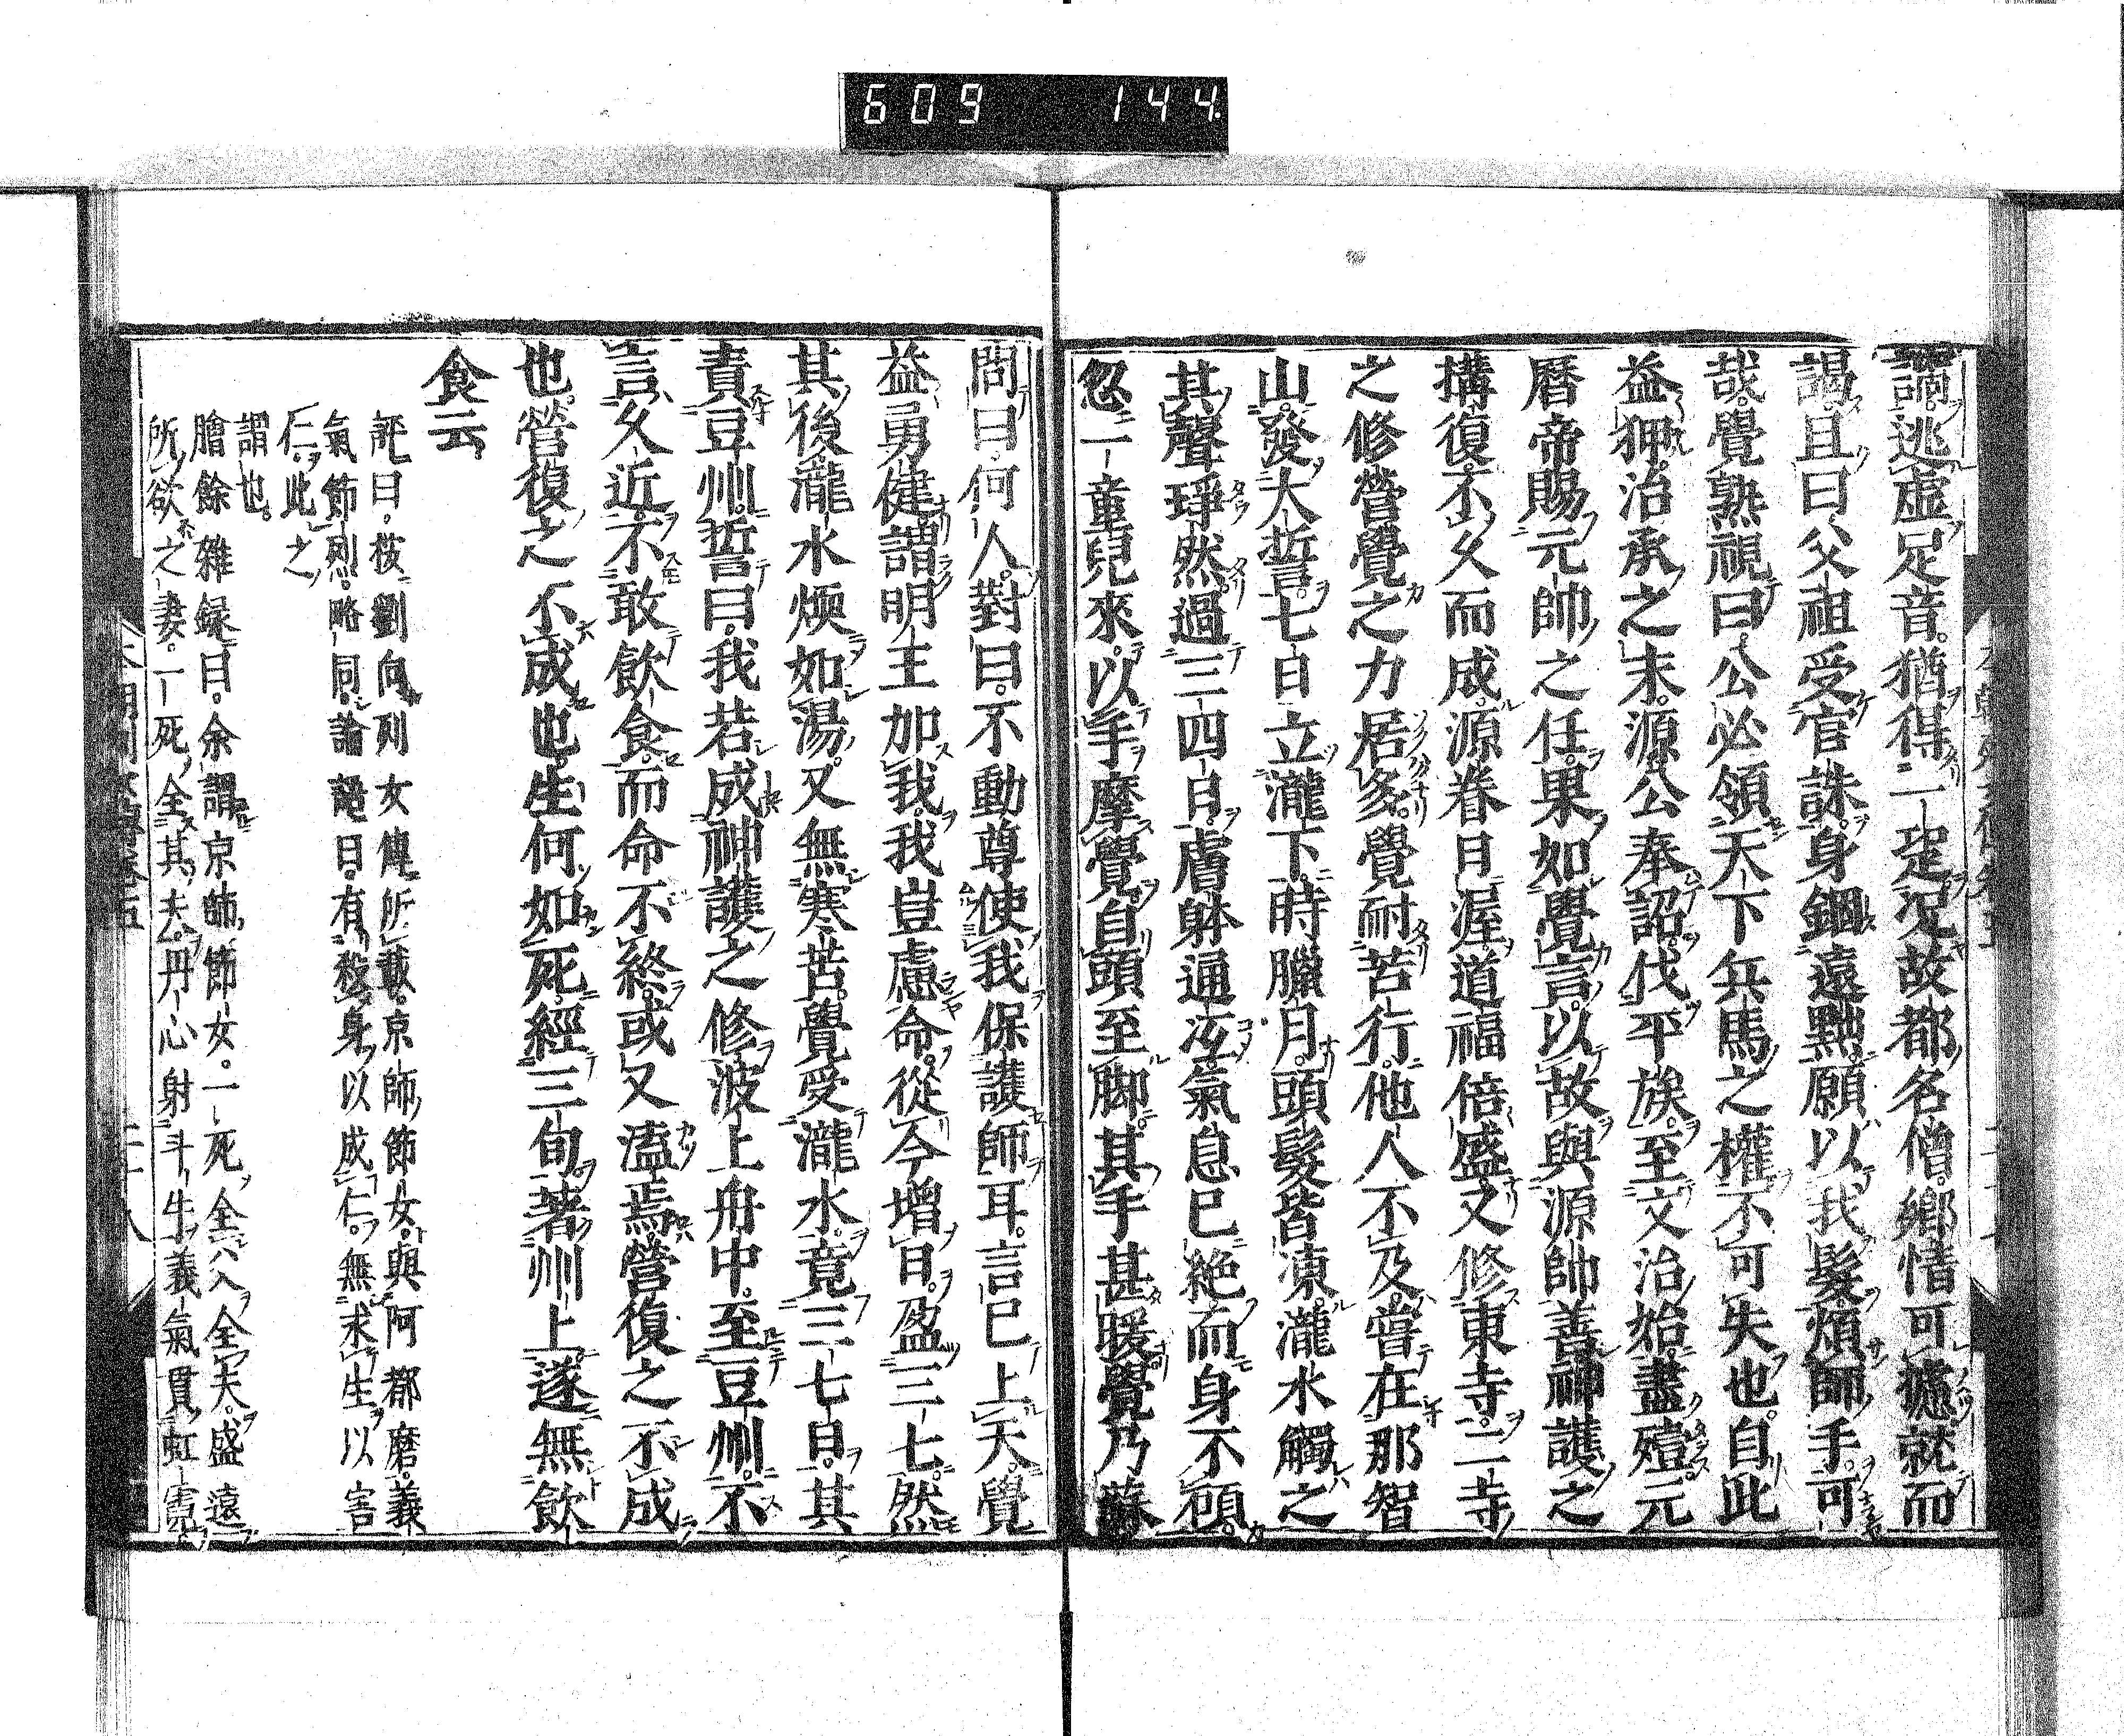 609 144
謫逃虛足音猶得二跫况故都名僧鄉惜可攄就而
謁且曰父祖受官誅身錮遠黜願以我髮煩師手可
哉覺熟視曰公必領天下兵馬之權不可失也自此
益狎治承之末源公奉詔伐平族至文治始盡殪元
曆帝賜元帥之任果如覺言以故與源帥善神護之
搆復不久而成源眷月渥道福倍盛又修東寺二寺
之修營覺之力居多覺耐苦行他人不及嘗在那智
山發大誓七日立瀧下時臘月頭髮皆凍瀧水觸之
其聲琤然過三四日膚躰通冱氣息已絕而身不傾
忽一童兒來以手摩覺自頭至脚其手甚暖覺乃蘇
問曰何人對曰不動尊使我保護師耳言已上天覺
益勇健謂明王加我我豈慮命從今增日盈三七然
其後瀧水煗如湯又無寒苦覺受瀧水竟三七日其
責豆州誓曰我若成神護之修波上舟中至豆州不
言久近不敢飲食而命不終或又溘焉營復之不成
也營復之不成也生何如死經三旬著州上遂無飲
食云
評曰按劉向列女傳所載京師節女與阿都磨義
氣節烈略同論語曰有殺身以成仁無求生以害
仁此之
謂也
膾餘雜錄曰余謂京師節女一死全父全夫盛遠
所欲之妻一死全其夫丹心射斗牛義氣貫虹霓